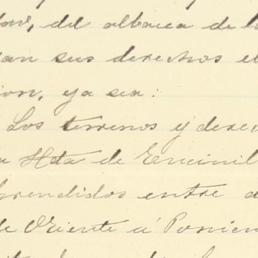 del albacea de l
an sus derechos e
ion, ya sea:
Los terrenos y derec
Hda de Encinil
prendidos entre
de Oriente á Ponien